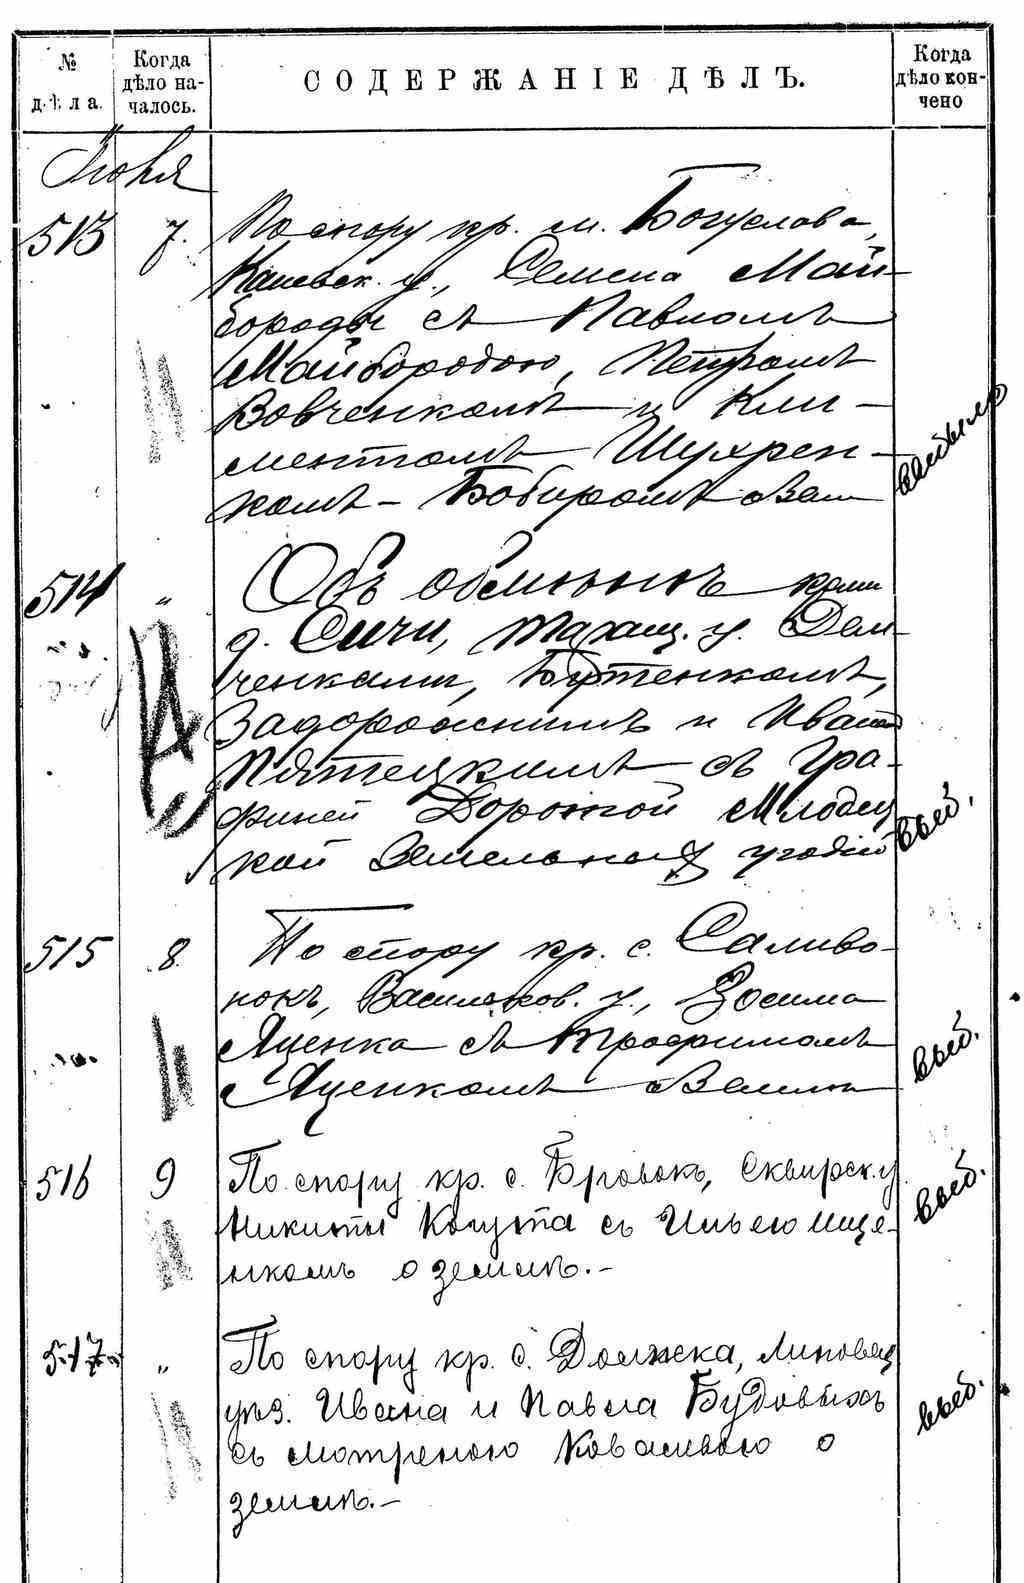 № дѣла.
Когда дѣло на- чалось.
СОДЕРЖАНІЕ ДѢЛЪ.
Когда дѣло кон- чено
Июня
513 7. По спору кр. м. Богуслава,
Каневск. у., Семена Май-
бороды съ Павломъ
Майбородою, Петромъ
Вовченкомъ и Кли-
ментомъ
комъ - выбыло
514 " Объ обмѣнѣ
д. Сичи, Таращ. у. Дем-
ченками, Бутенкомъ,
Задорожнимъ и Иваномъ
Пятецкимъ съ гра-
финей Млодец
кой земельных угодій выб.
515 8. По спору кр. с. Саливо-
нокъ, Васильков. у., Зосима
Яценка съ Трофимомъ
Яценкомъ о землѣ выб.
516 9 По спору кр. с. Бровокъ, Сквирск. у
Никиты Когута съ Ильею Ище-
нкомъ о землѣ.- выб.
517 " По спору кр. с. Должка, Липовец
уѣз. Ивана и Павла Будовыхъ
съ Мотреною Ковалевою о
землѣ.- выб.